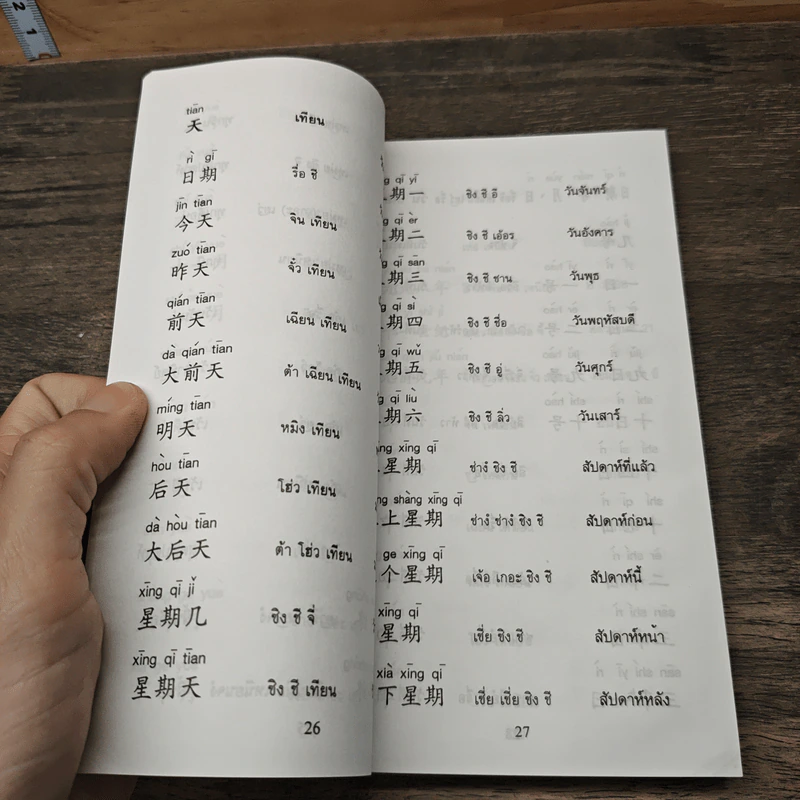 2
1
tiān
天 เทียน
rì qī
日期 รื่อ ชี
jīn tiān
今天 จิน เทียน
zuó tiān
昨天 จั๋ว เทียน
qián tiān
前天 เฉียน เทียน
dà qián tiān
大前天 ต้า เฉียน เทียน
míng tiān
明天 หมิง เทียน
hòu tiān
后天 โฮ่ว เทียน
dà hòu tiān
大后天 ต้า โฮ่ว เทียน
xīng qī jǐ
星期几 ชิง ชี จี่
xīng qī tiān
星期天 ชิง ชี เทียน
26
qī yī
期一 ชิง ชี อี วันจันทร์
qī èr
期二 ชิง ชี เอ้อร วันอังคาร
qī sān
期三 ชิง ชี ซาน วันพุธ
qī sì
期四 ชิง ชี ซื่อ วันพฤหัสบดี
qī wǔ
期五 ชิง ชี อู่ วันศุกร์
qī liù
期六 ชิง ชี ลิ่ว วันเสาร์
xīng qī
星期 ช่างํ ชิง ชี สัปดาห์ที่แล้ว
shàng xīng qī
上星期 ช่างํ ช่างํ ชิง ชี สัปดาห์ก่อน
ge xīng qī
个星期 เจ้อ เกอะ ชิง ชี สัปดาห์นี้
xīng qī
星期 เชี่ย ชิง ชี สัปดาห์หน้า
xià xīng qī
下星期 เชี่ย เชี่ย ชิง ชี สัปดาห์หลัง
27